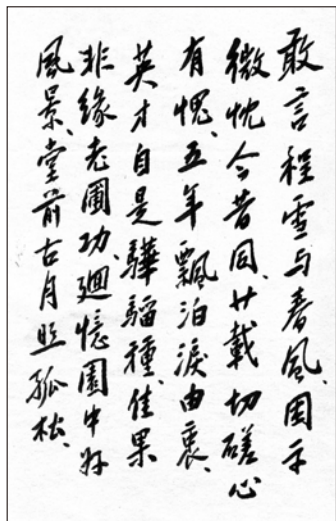 敢言程雪与春风、围示
微忱今昔同、廿載切磋心
有愧、五年飄泊淚由衷、
英才自是驊騮種、佳果
非緣老圃功、迴憶園中好
風景、堂前古月照孤松、